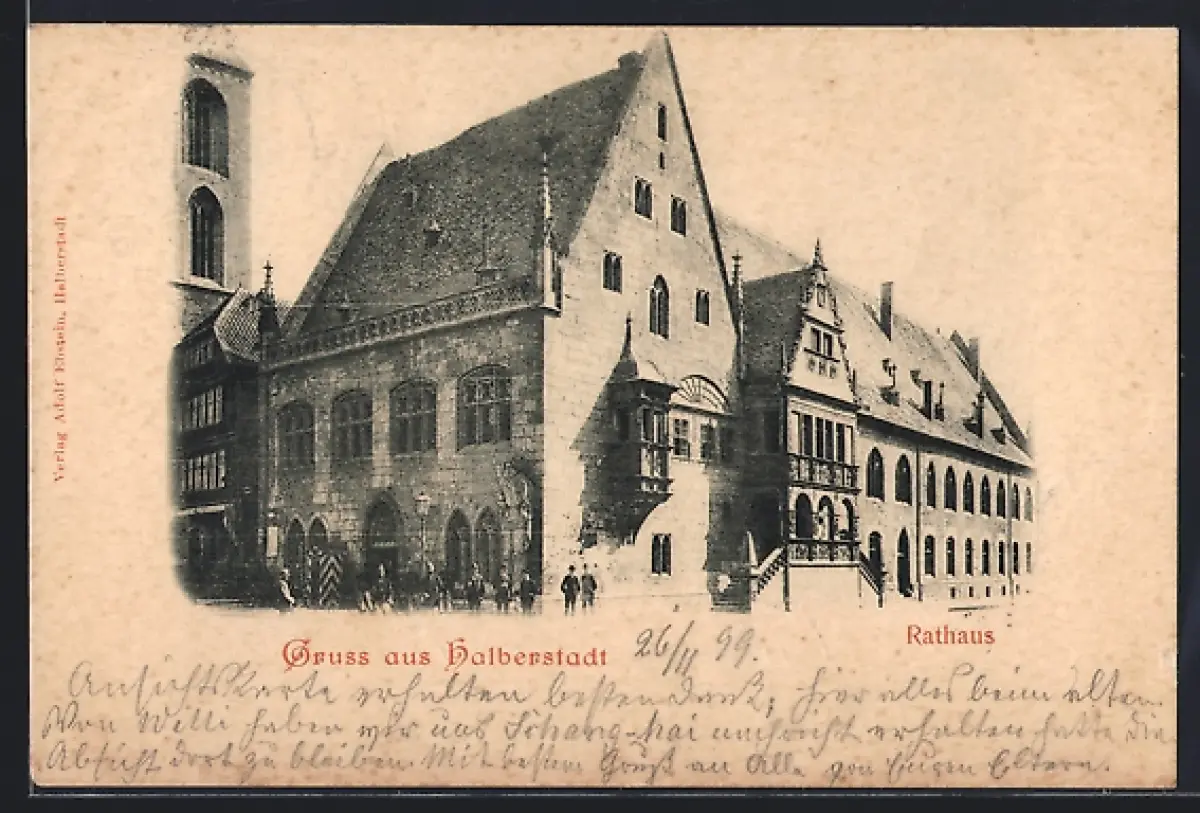 Verlag Adolf Ebstein, Halberstadt
Gruss aus Halberstadt
26/II 99.
Rathaus
Ansichtskarte erhalten besten Dank, hier alles beim alten.
Von Willi haben wir aus Schang-hai nachricht erhalten hatte die
Absicht dort zu bleiben. Mit besten Gruß an Alle von Euren Eltern.